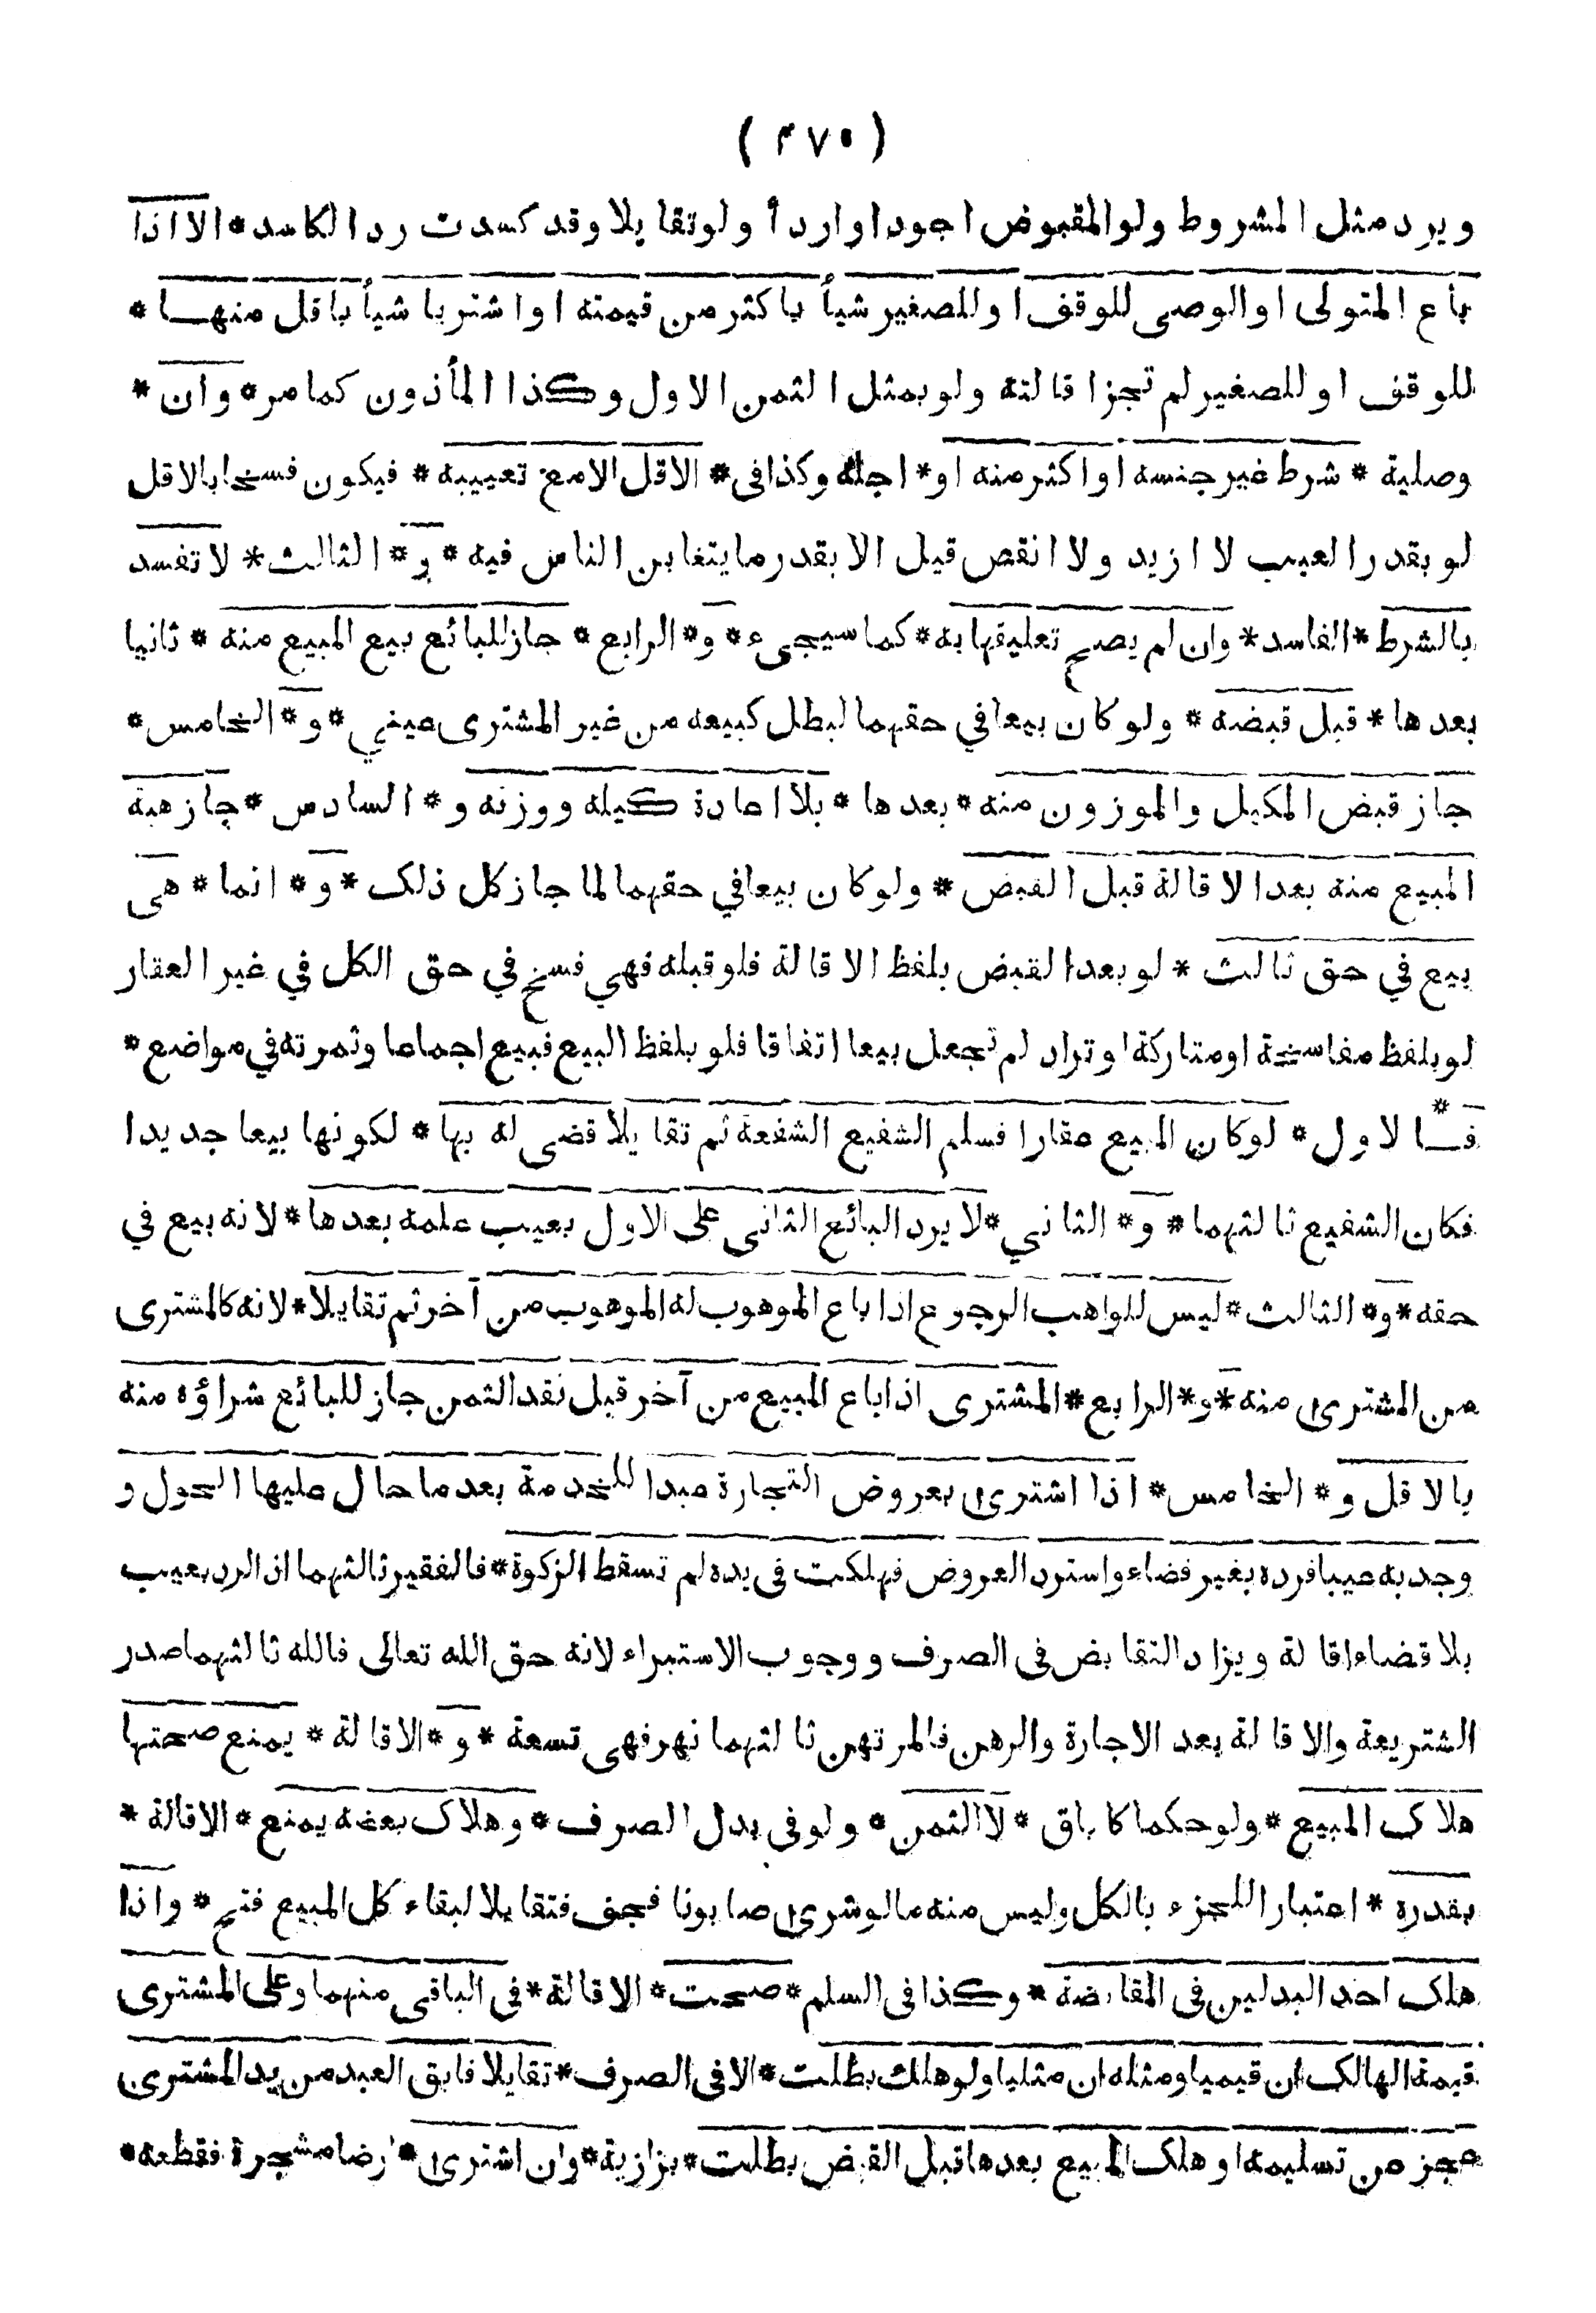 ( ٤٧٥ )
ويرد مثل المشروط ولو المقبوض اجود او اردأ ولو تقايلا وقد كسدت رد الكاسد * الا اذا
باع المتولى او الوصى للوقف او للصغير شيأ باكثر من قيمته او اشتريا شيأ باقل منها *
للوقف او للصغير لم تجز اقالته ولو بمثل الثمن الاول وكذا المأذون كما مر * وان *
وصلية * شرط غير جنسه او اكثر منه او * اجله وكذا فى * الاقل الا مع تعييبه * فيكون فسخا بالاقل
لو بقدر العيب لا ازيد ولا انقص قيل الا بقدر ما يتغابن الناس فيه * و * الثالث * لا تفسد
بالشرط * الفاسد * وان لم يصح تعليقها به * كما سيجىء * و * الرابع * جاز للبائع بيع المبيع منه * ثانيا
بعدها * قبل قبضه * ولو كان بيعا في حقهما لبطل كبيعه من غير المشترى عيني * و * الخامس *
جاز قبض المكيل والموزون منه * بعدها * بلا اعادة كيله ووزنه و * السادس * جاز هبة
المبيع منه بعد الاقالة قبل القبض * ولو كان بيعا في حقهما لما جاز كل ذلك * و * انما * هى
بيع في حق ثالث * لو بعد القبض بلفظ الاقالة فلو قبله فهي فسخ في حق الكل في غير العقار
لو بلفظ مفاسخة او متاركة او تراد لم تجعل بيعا اتفاقا فلو بلفظ البيع فبيع اجماعا وثمرته في مواضع *
فـــا لاول * لو كان المبيع عقارا فسلم الشفيع الشفعة ثم تقايلا قضى له بها * لكونها بيعا جديدا
فكان الشفيع ثالثهما * و * الثاني * لا يرد البائع الثانى على الاول بعيب علمه بعدها * لانه بيع في
حقه * و * الثالث * ليس للواهب الرجوع اذا باع الموهوب له الموهوب من آخر ثم تقايلا * لانه كالمشترى
من المشترى منه * و * الرابع * المشترى اذا باع المبيع من آخر قبل نقد الثمن جاز للبائع شراؤه منه
بالاقل و * الخامس * اذا اشترى بعروض التجارة عبدا للخدمة بعد ما حال عليها الحول و
وجد به عيبا فرده بغير قضاء واسترد العروض فهلكت فى يده لم تسقط الزكوة * فالفقير ثالثهما اذ الرد بعيب
بلا قضاء اقالة ويزاد التقابض فى الصرف ووجوب الاستبراء لانه حق الله تعالى فالله ثالثهما صدر
الشريعة والاقالة بعد الاجارة والرهن فالمرتهن ثالثهما نهر فهى تسعة * و * الاقالة * يمنع صحتها
هلاك المبيع * ولو حكما كاباق * لا الثمن * ولو فى بدل الصرف * وهلاك بعضه يمنع * الاقالة *
بقدره * اعتبارا للجزء بالكل وليس منه مالو شرى صابونا فجف فتقايلا لبقاء كل المبيع فتح * واذا
هلك احد البدلين فى المقايضة * وكذا فى السلم * صحت * الاقالة * فى الباقى منهما وعلى المشترى
قيمة الهالك ان قيميا ومثله ان مثليا ولو هلك بطلت * الا فى الصرف * تقايلا فابق العبد من يد المشترى
عجز عن تسليمه او هلك المبيع بعدها قبل القبض بطلت * بزازية * وان اشترى * ارضا مشجرة فقطعه *